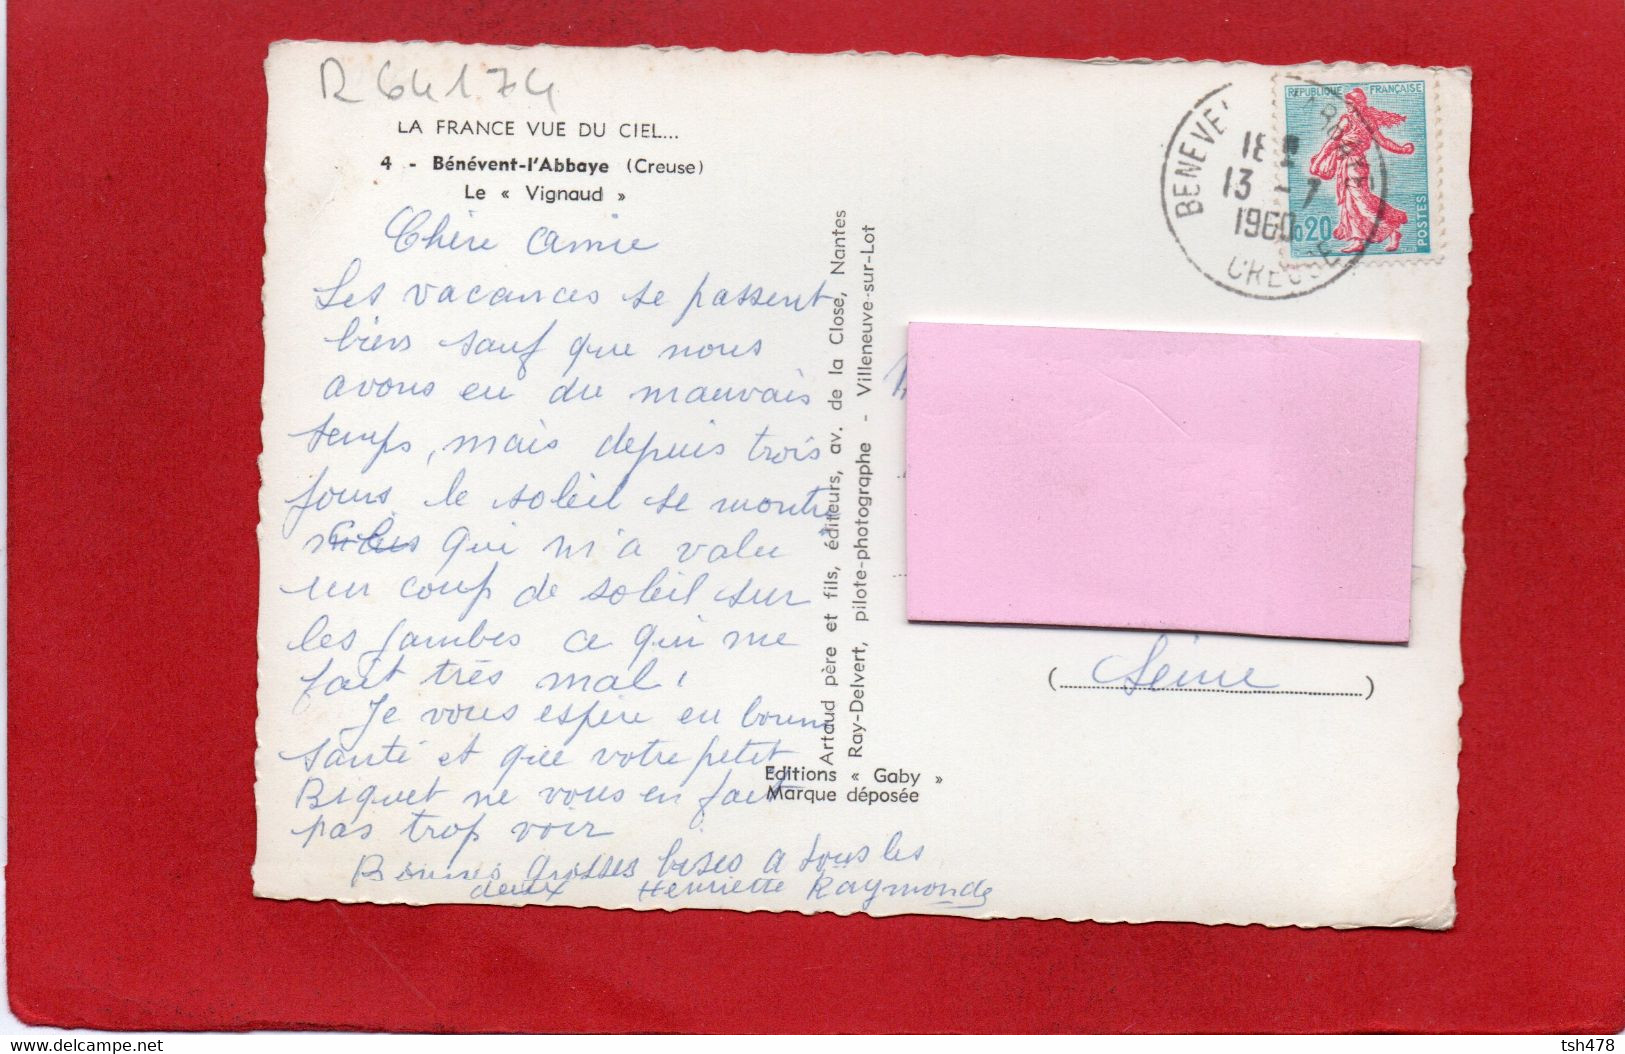 R 64174
LA FRANCE VUE DU CIEL...
4 - Bénévent-l'Abbaye (Creuse)
Le « Vignaud »
Chère amie
Les vacances se passent
bien sauf que nous
avons eu du mauvais
temps, mais depuis trois
jours le soleil se montre
qui m'a valu
un coup de soleil sur
les jambes ce qui me
fait très mal!
Je vous espère en bonne
santé et que votre petit
Biquet ne vous en fait
pas trop voir
Bonnes grosses bises a tous les
deux Henriette Raymonde
Artaud père et fils, éditeurs, av. de la Close, Nantes
Ray-Delvert, pilote-photographe - Villeneuve-sur-Lot
Editions « Gaby »
Marque déposée
REPUBLIQUE FRANÇAISE
0,20
POSTES
BENEVE ABBAYE
18
13 - 7
1960
CREUSE
(Seine)
tsh478
www.delcampe.net